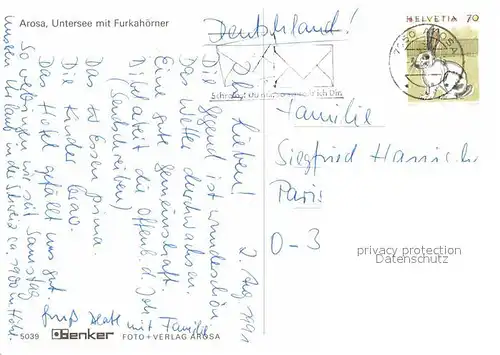 Arosa, Untersee mit Furkahörner
Deutschland!
HELVETIA 70
AROSA
2. Aug 1991
Ihr Lieben!
Die Gegend ist wunderschön
Das Wetter durchwachsen.
Eine gute Gemeinschaft.
Bibelarbeit die Offenb. d. Joh.
(Sendschreiben)
Das Essen prima.
Die Kinder brav.
Das Hotel gefällt uns gut.
So verbringen wir seit Samstag
unseren Urlaub in der Schweiz ca. 1900 m Höhe.
Gruß Beate mit Familie
Familie
Siegfried
Paris
D-3
privacy protection
Datenschutz
5039
Benker
FOTO + VERLAG AROSA